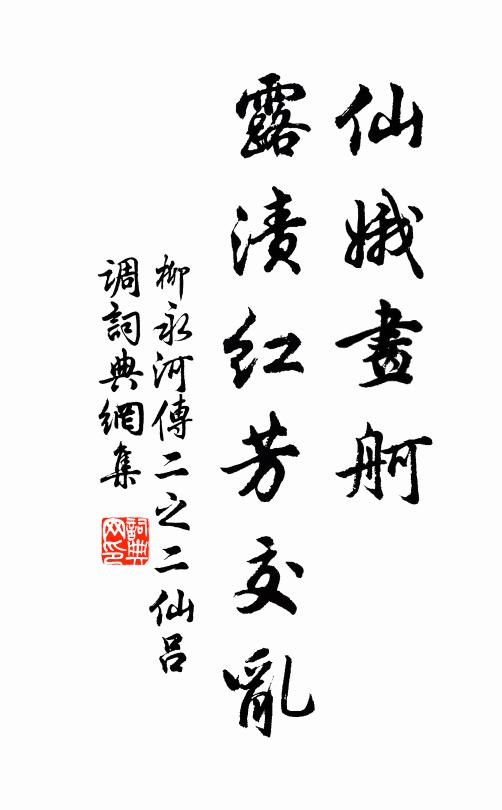 仙娥畫舸
露漬紅芳交亂
柳永河傳二之二仙呂
调詞典網集
詞典网印